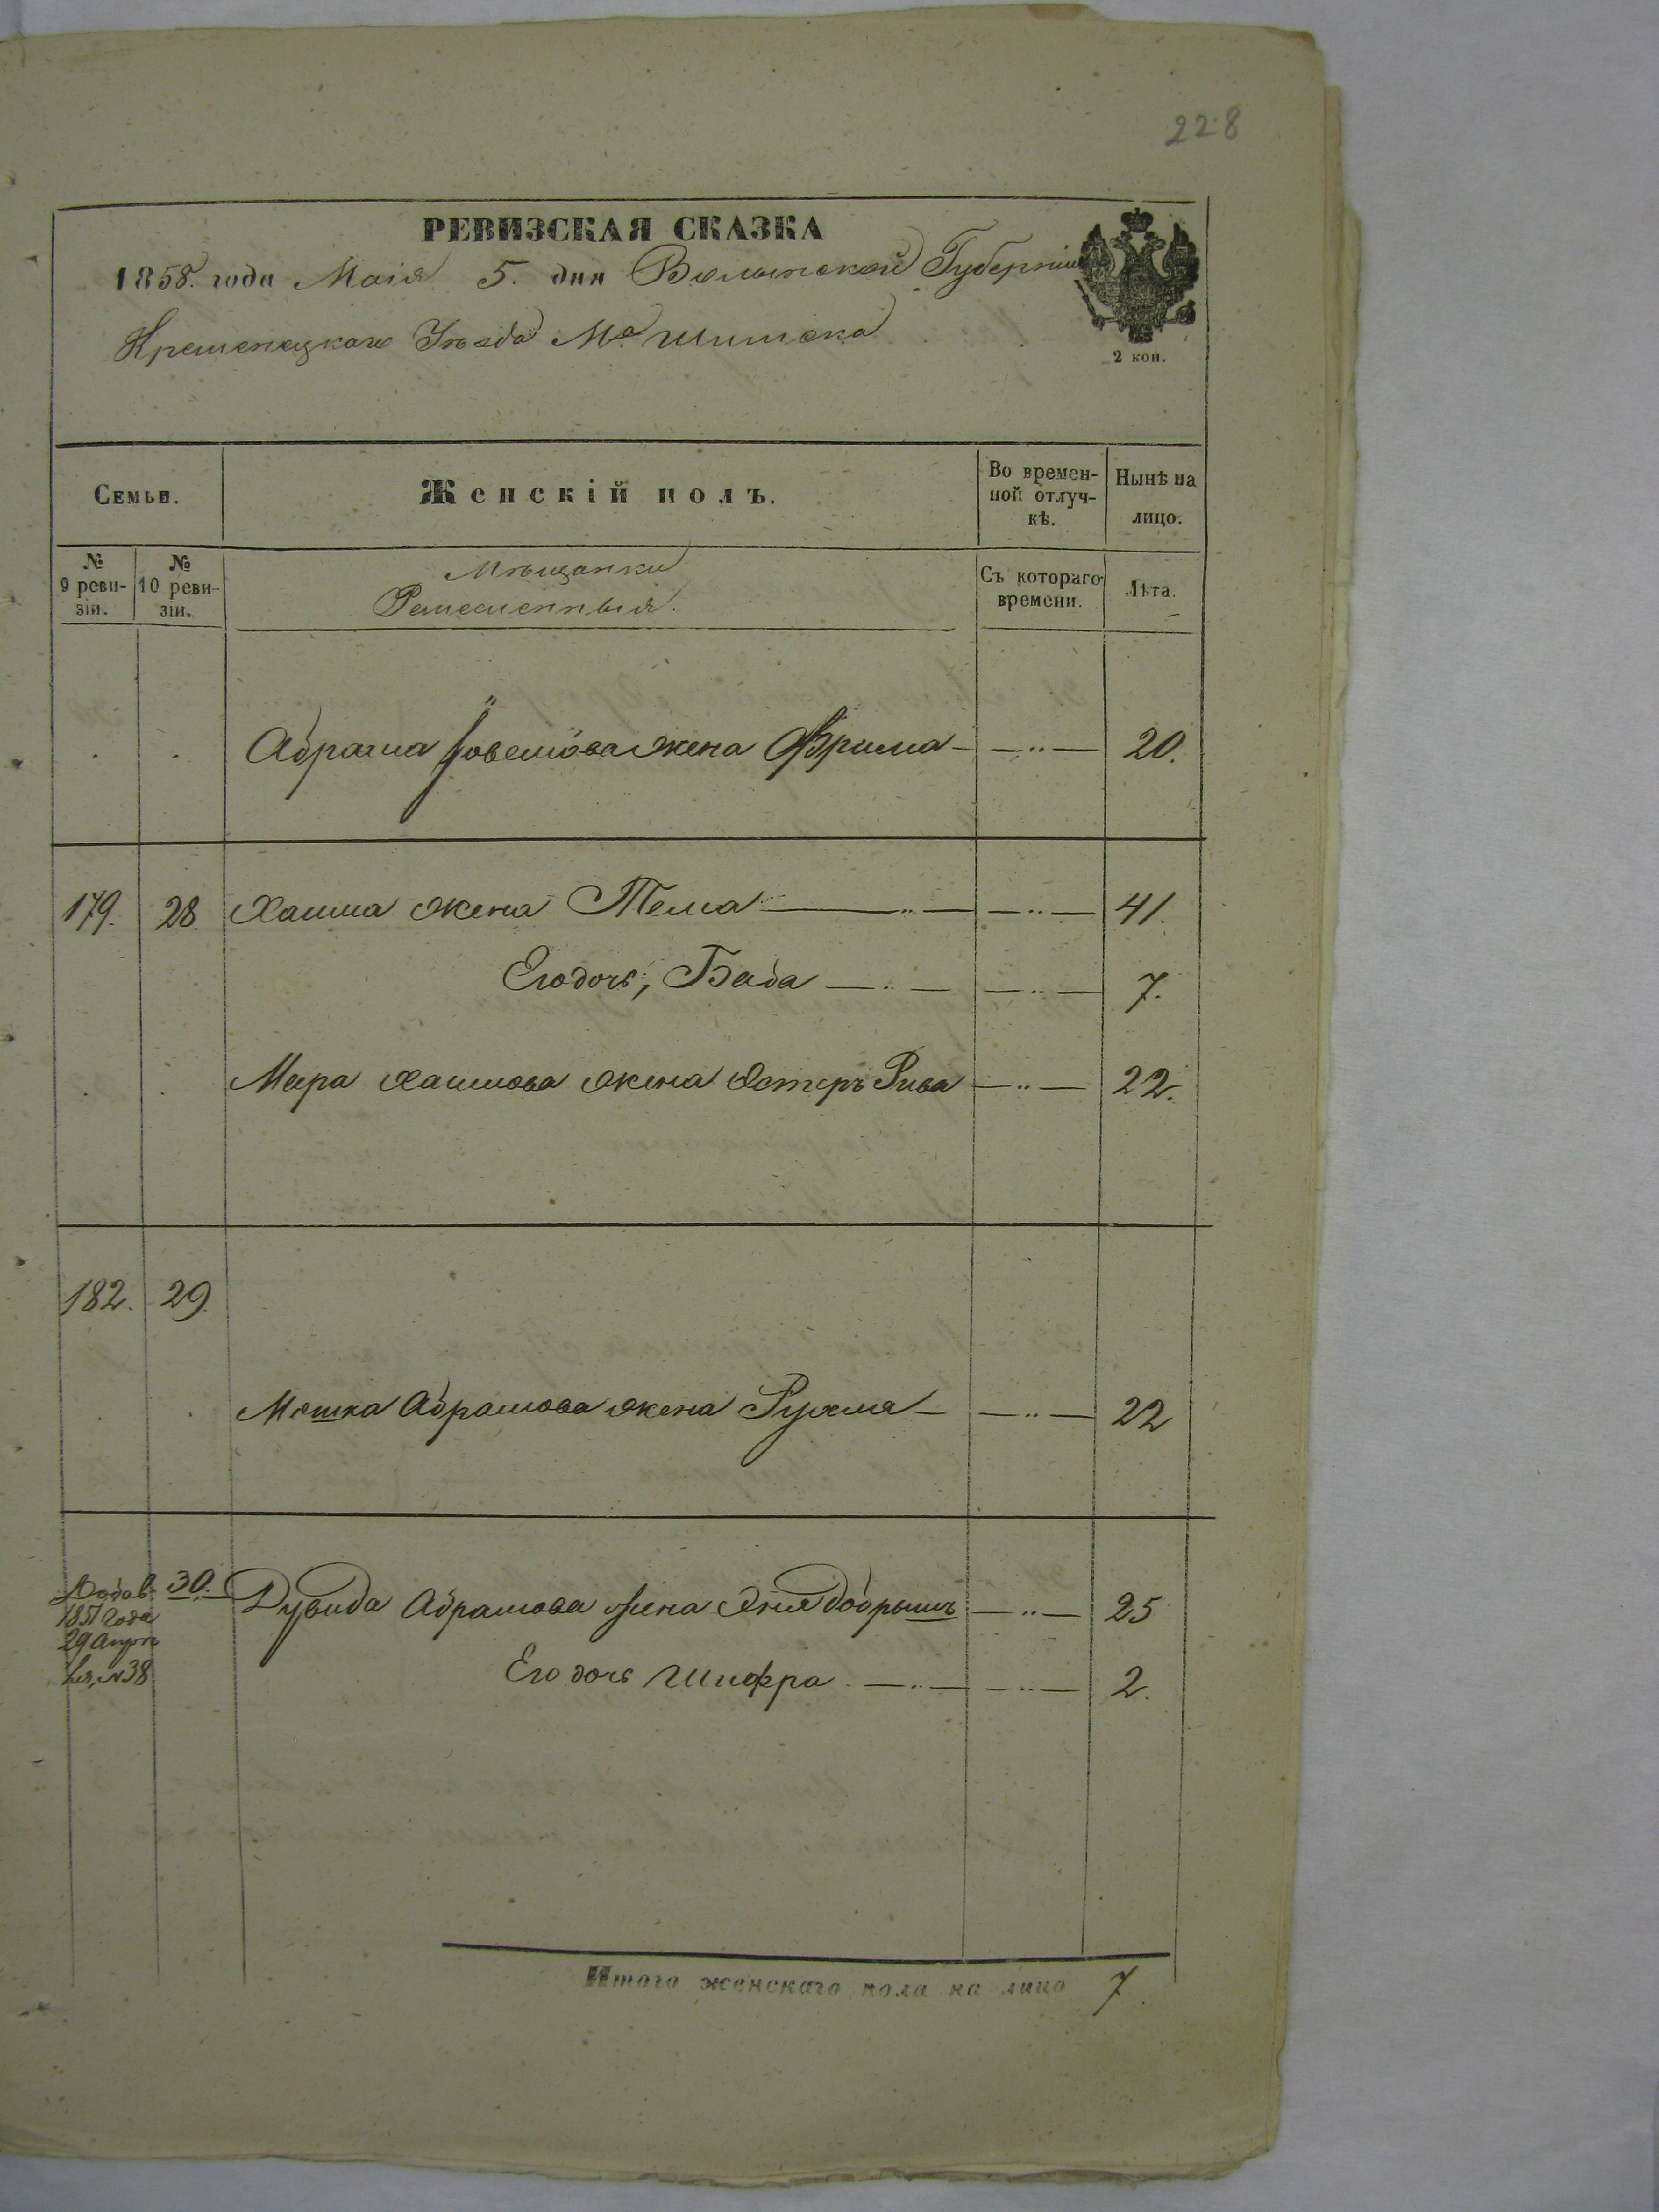 228
РЕВИЗСКАЯ СКАЗКА
1858. года Маія 5. дня Волынской Губерніи
Кременецкаго Уѣзда Мѣ Шумска
2 коп.
Семьи. Женскій полъ. Во времен-ной отлуч-кѣ. Нынѣ на лицо.
№ 9 реви-зіи. № 10 реви-зіи. Мѣщанки Ремесленныя. Съ котораго времени. Лѣта.
Абрама жена Фрима — 20.
179. 28. Хаима жена Тема — 41.
Его дочь, Баба — 7.
Меера Хаимова жена Эстеръ Рива — 22.
182. 29.
Мошка Абрамова жена Рухля — 22
Добав. 30. Дувида Абрамова жена Хая Добрышъ — 25
1851 Года
29 Апрѣ
ля, №38
Его дочь Шифра — 2.
Итого женскаго пола на лицо 7